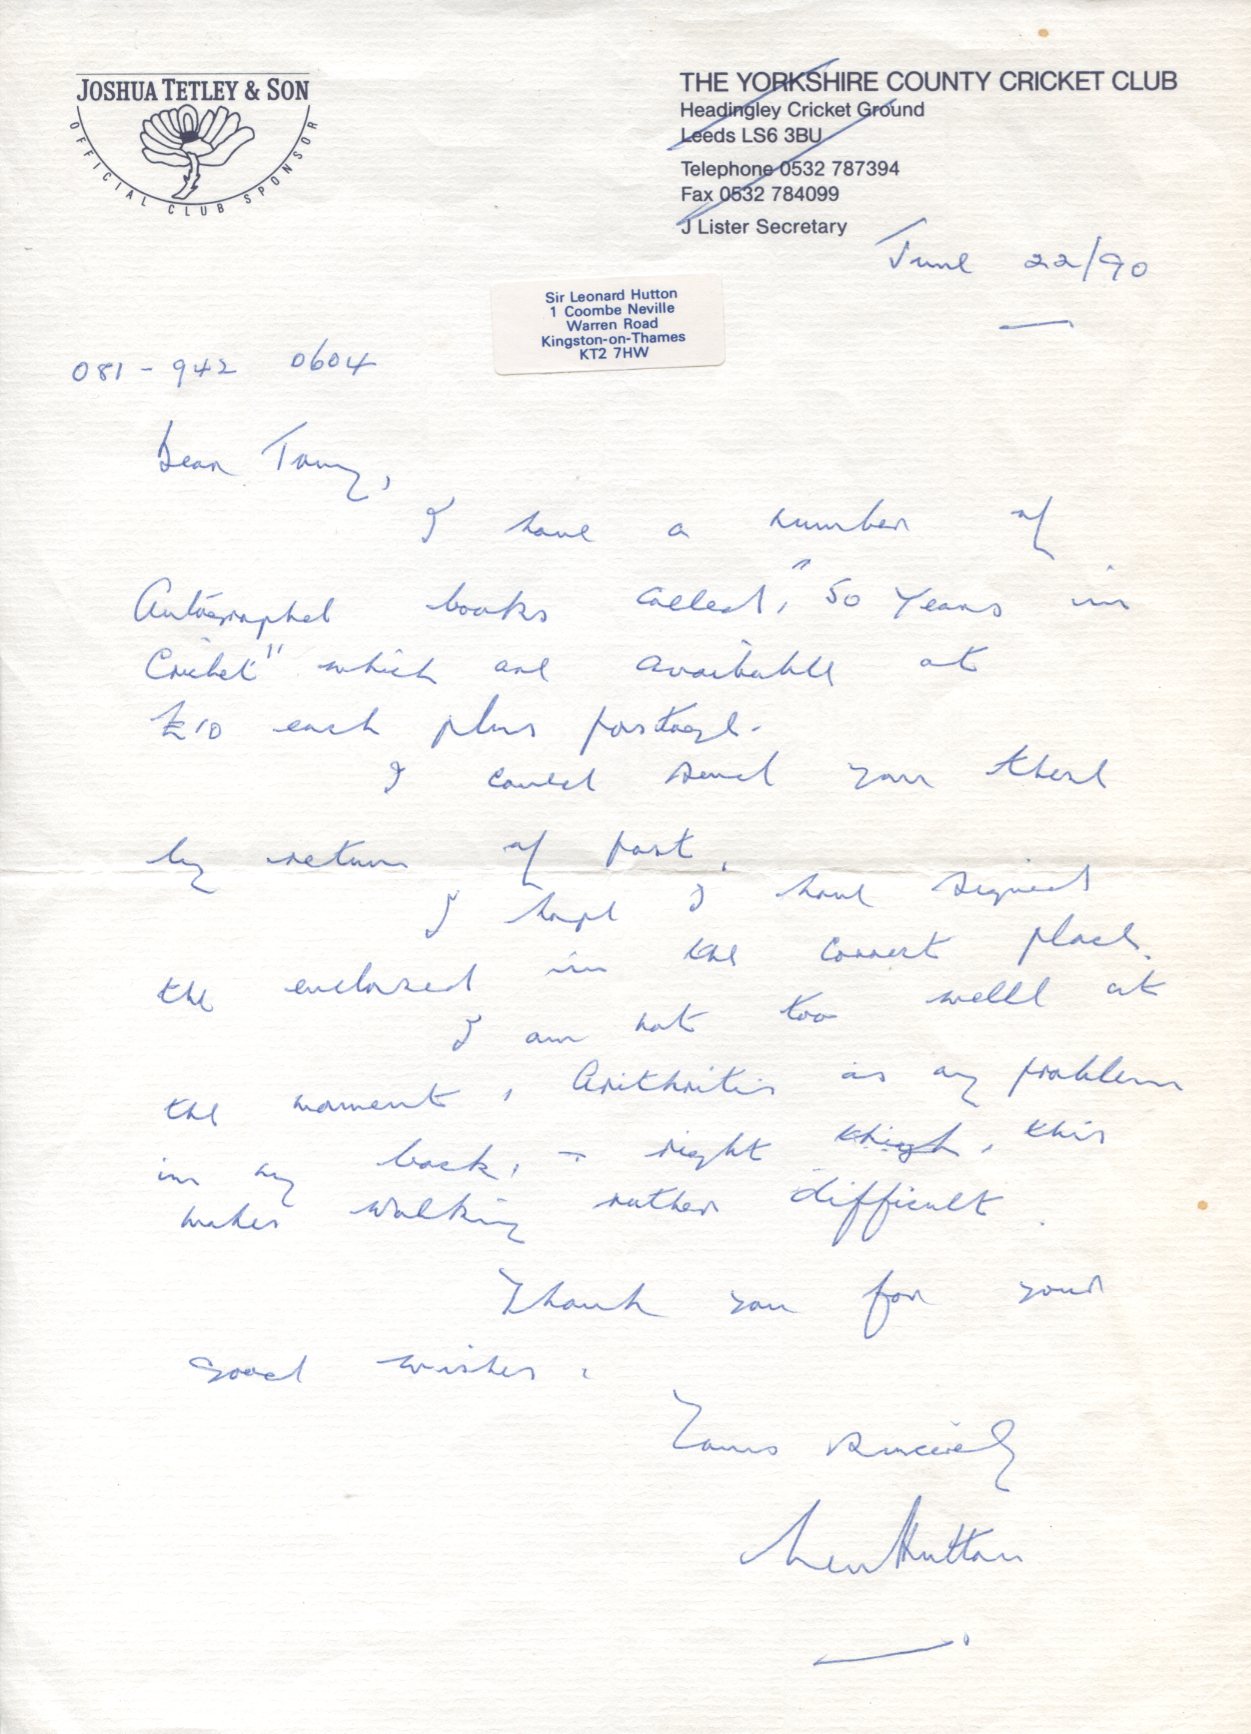 JOSHUA TETLEY & SON
OFFICIAL CLUB SPONSOR
THE YORKSHIRE COUNTY CRICKET CLUB
Headingley Cricket Ground
Leeds LS6 3BU
Telephone 0532 787394
Fax 0532 784099
J Lister Secretary
June 22/90
Sir Leonard Hutton
1 Coombe Neville
Warren Road
Kingston-on-Thames
KT2 7HW
081 - 942 0604
Dear Tony,
I have a number of
Autographed books called, "50 Years in
Cricket" which are available at
£10 each plus postage.
I could send you these
by return of post.
I hope I have signed
the enclosed in the correct place.
I am not too well at
the moment, Arithritis is my problem
in my back, + right thigh, this
makes walking rather difficult.
Thank you for your
good wishes.
Yours sincerely
Len Hutton